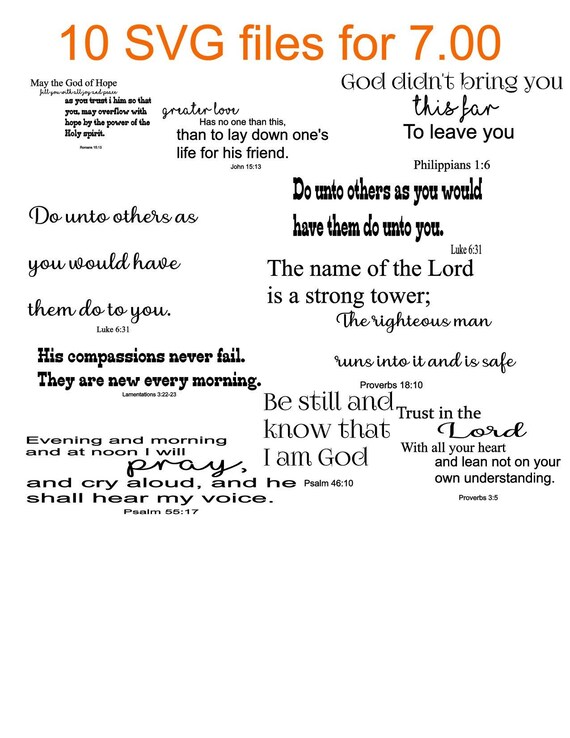 10 SVG files for 7.00
May the God of Hope
fill you with all joy and peace
as you trust i him so that
you, may overflow with
hope by the power of the
Holy spirit.
Romans 15:13
greater love
Has no one than this,
than to lay down one's
life for his friend.
John 15:13
God didn't bring you
this far
To leave you
Philippians 1:6
Do unto others as you would
have them do unto you.
Luke 6:31
Do unto others as
you would have
them do to you.
Luke 6:31
The name of the Lord
is a strong tower;
The righteous man
runs into it and is safe
Proverbs 18:10
His compassions never fail.
They are new every morning.
Lamentations 3:22-23
Be still and
know that
I am God
Psalm 46:10
Trust in the
Lord
With all your heart
and lean not on your
own understanding.
Proverbs 3:5
Evening and morning
and at noon I will
pray,
and cry aloud, and he
shall hear my voice.
Psalm 55:17